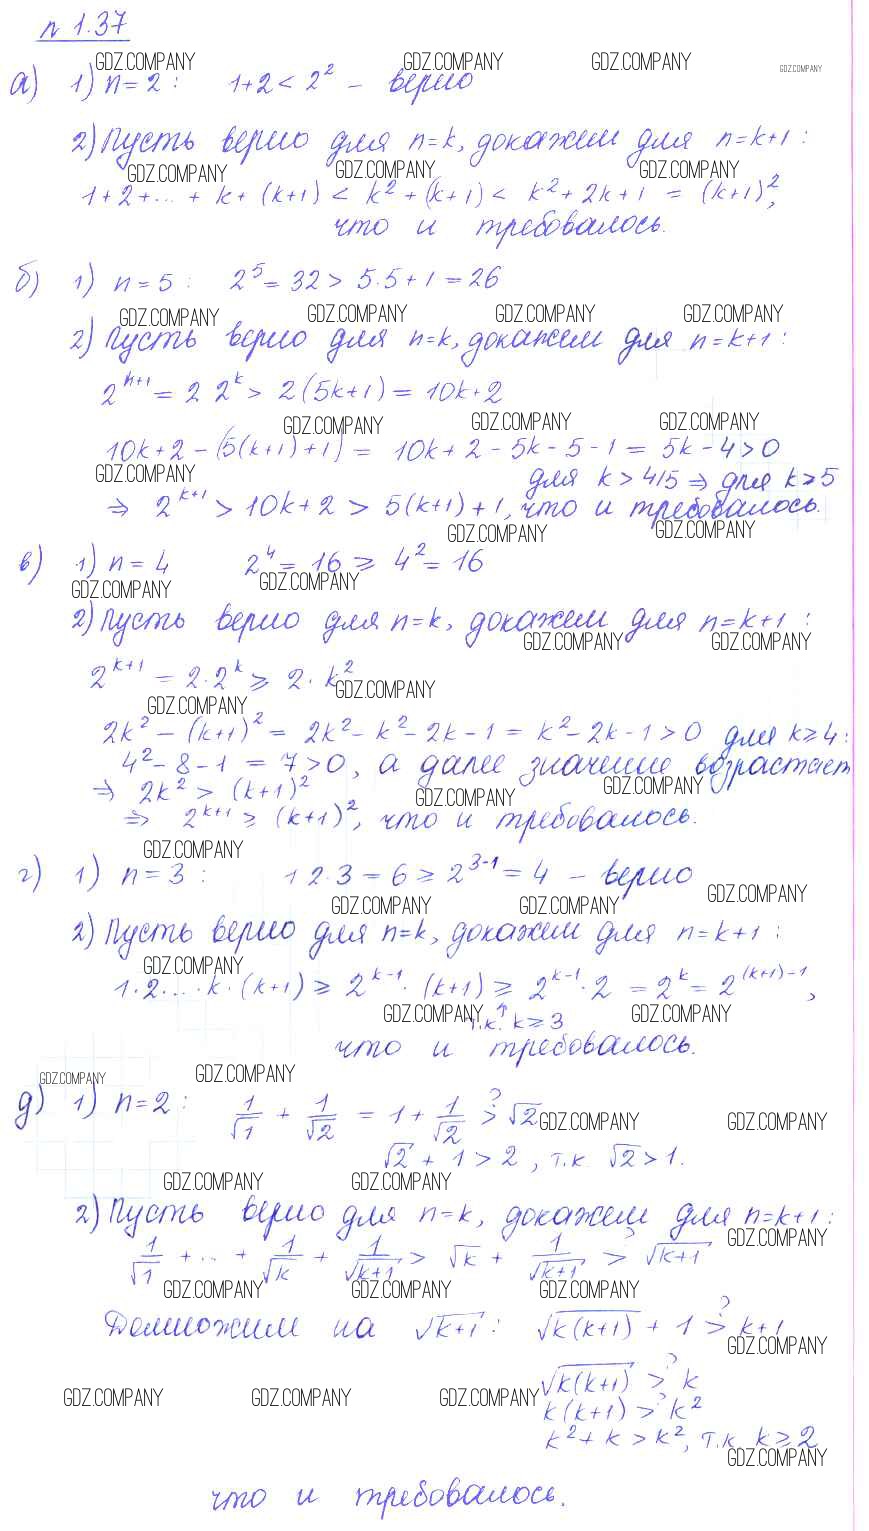 n 1.37
GDZ.COMPANY GDZ.COMPANY GDZ.COMPANY GDZ.COMPANY
а) 1) n = 2 : 1+2 < 2² – верно
2) Пусть верно для n=k, докажем для n=k+1 :
GDZ.COMPANY GDZ.COMPANY GDZ.COMPANY
1+2+...+ k+ (k+1) < k²+(k+1) < k²+2k+1 = (k+1)²,
что и требовалось.
б) 1) n = 5 : 2⁵ = 32 > 5·5+1 = 26
GDZ.COMPANY GDZ.COMPANY GDZ.COMPANY GDZ.COMPANY
2) Пусть верно для n=k, докажем для n=k+1 :
2ⁿ⁺¹ = 2 2ᵏ > 2(5k+1) = 10k+2
GDZ.COMPANY GDZ.COMPANY GDZ.COMPANY
10k+2 – (5(k+1)+1) = 10k+2 – 5k – 5 – 1 = 5k – 4 > 0
GDZ.COMPANY
для k > 4/5 ⇒ для k ≥ 5
⇒ 2ᵏ⁺¹ > 10k+2 > 5(k+1)+1, что и требовалось.
GDZ.COMPANY GDZ.COMPANY
в) 1) n = 4 2⁴ = 16 ≥ 4² = 16
GDZ.COMPANY GDZ.COMPANY
2) Пусть верно для n=k, докажем для n=k+1 :
GDZ.COMPANY GDZ.COMPANY
2ᵏ⁺¹ = 2·2ᵏ ≥ 2·k²
GDZ.COMPANY
GDZ.COMPANY
2k² – (k+1)² = 2k² – k² – 2k – 1 = k² – 2k – 1 > 0 для k ≥ 4 :
4² – 8 – 1 = 7 > 0, а далее значение возрастает
⇒ 2k² > (k+1)²
GDZ.COMPANY GDZ.COMPANY
⇒ 2ᵏ⁺¹ ≥ (k+1)², что и требовалось.
GDZ.COMPANY
г) 1) n = 3 : 1 2·3 = 6 ≥ 2³⁻¹ = 4 – верно
GDZ.COMPANY GDZ.COMPANY GDZ.COMPANY
2) Пусть верно для n=k, докажем для n=k+1 :
GDZ.COMPANY
1·2·...·k·(k+1) ≥ 2ᵏ⁻¹·(k+1) ≥ 2ᵏ⁻¹·2 = 2ᵏ = 2⁽ᵏ⁺¹⁾⁻¹,
GDZ.COMPANY ↑ GDZ.COMPANY
т.к. k ≥ 3
что и требовалось.
GDZ.COMPANY GDZ.COMPANY
д) 1) n = 2 : 1/√1 + 1/√2 = 1 + 1/√2 >? √2
GDZ.COMPANY GDZ.COMPANY
√2 + 1 > 2, т.к √2 > 1.
GDZ.COMPANY GDZ.COMPANY
2) Пусть верно для n=k, докажем для n=k+1 :
GDZ.COMPANY
1/√1 + ... + 1/√k + 1/√(k+1) > √k + 1/√(k+1) >? √(k+1)
GDZ.COMPANY GDZ.COMPANY GDZ.COMPANY
Домножим на √(k+1) : √(k(k+1)) + 1 >? k+1
GDZ.COMPANY
√(k(k+1)) >? k
GDZ.COMPANY GDZ.COMPANY GDZ.COMPANY
k(k+1) >? k²
k² + k > k², т.к k ≥ 2
GDZ.COMPANY
что и требовалось.